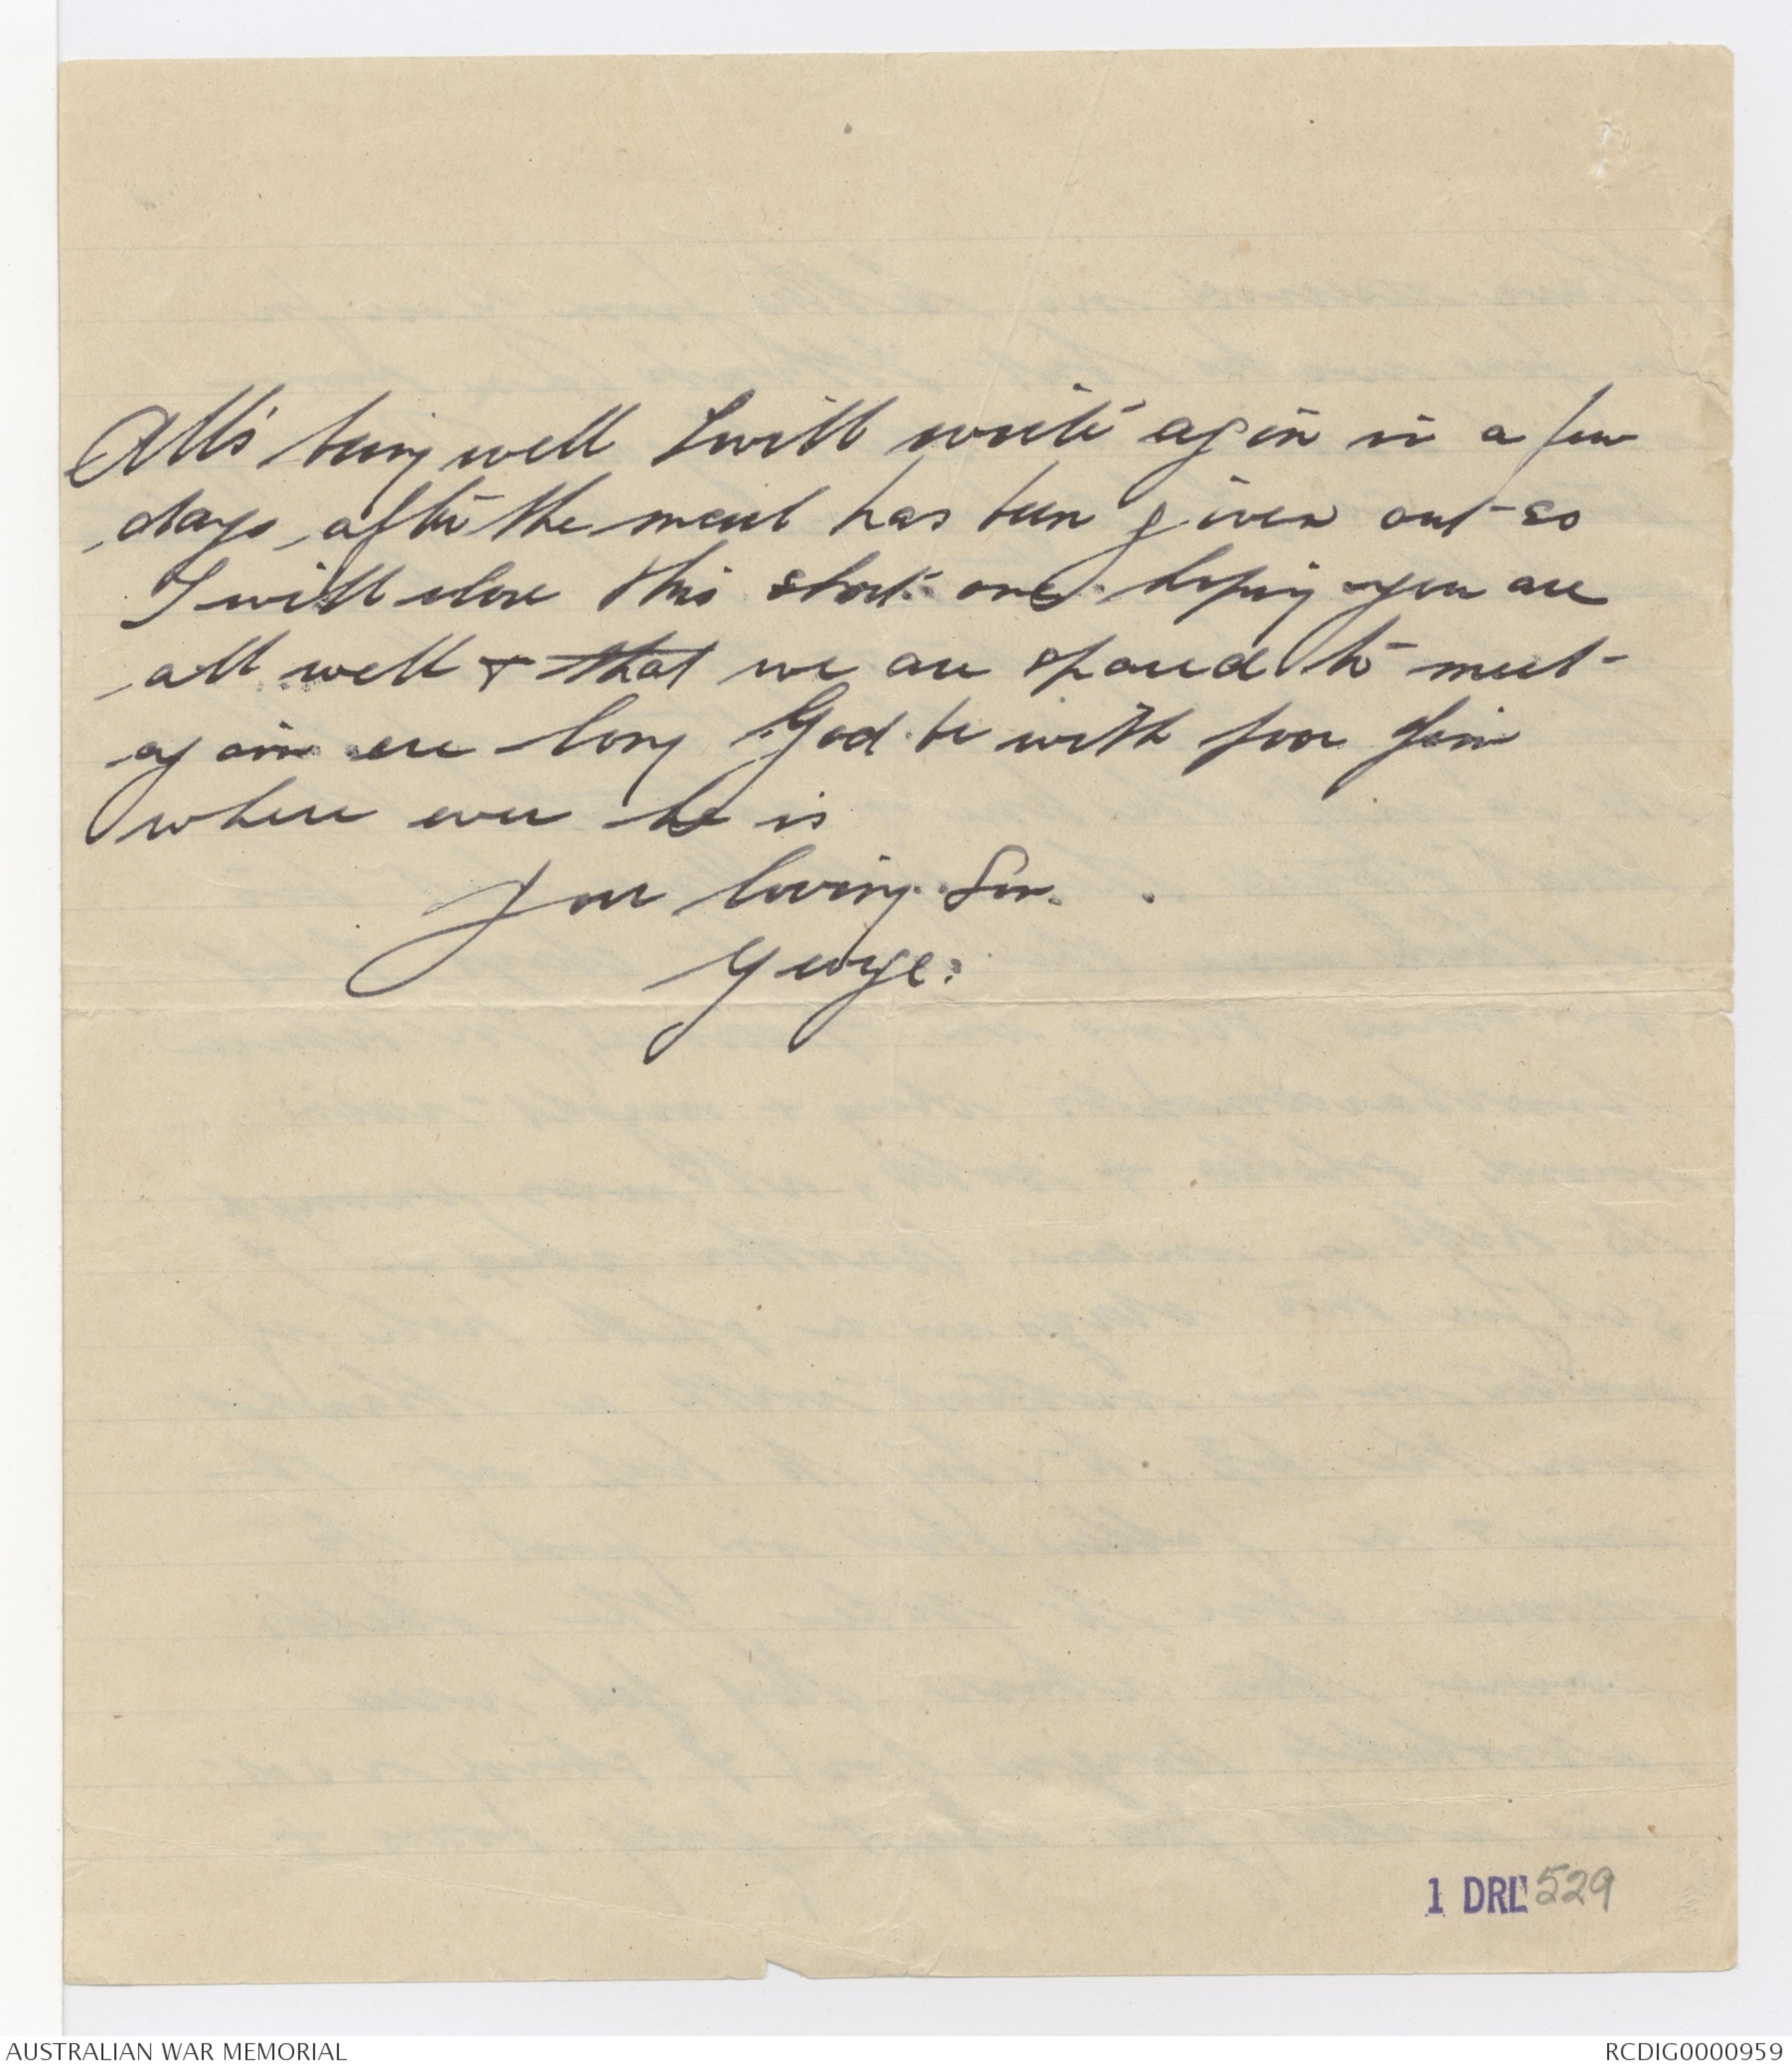 All's being well I will write again in a few
days after the mail has been given out so
I will close this short one hoping you are
all well & that we are spared to meet
again ere long God be with poor Jim
where ever he is
Your loving Son.
George.
1 DRL 529
AUSTRALIAN WAR MEMORIAL
RCDIG0000959